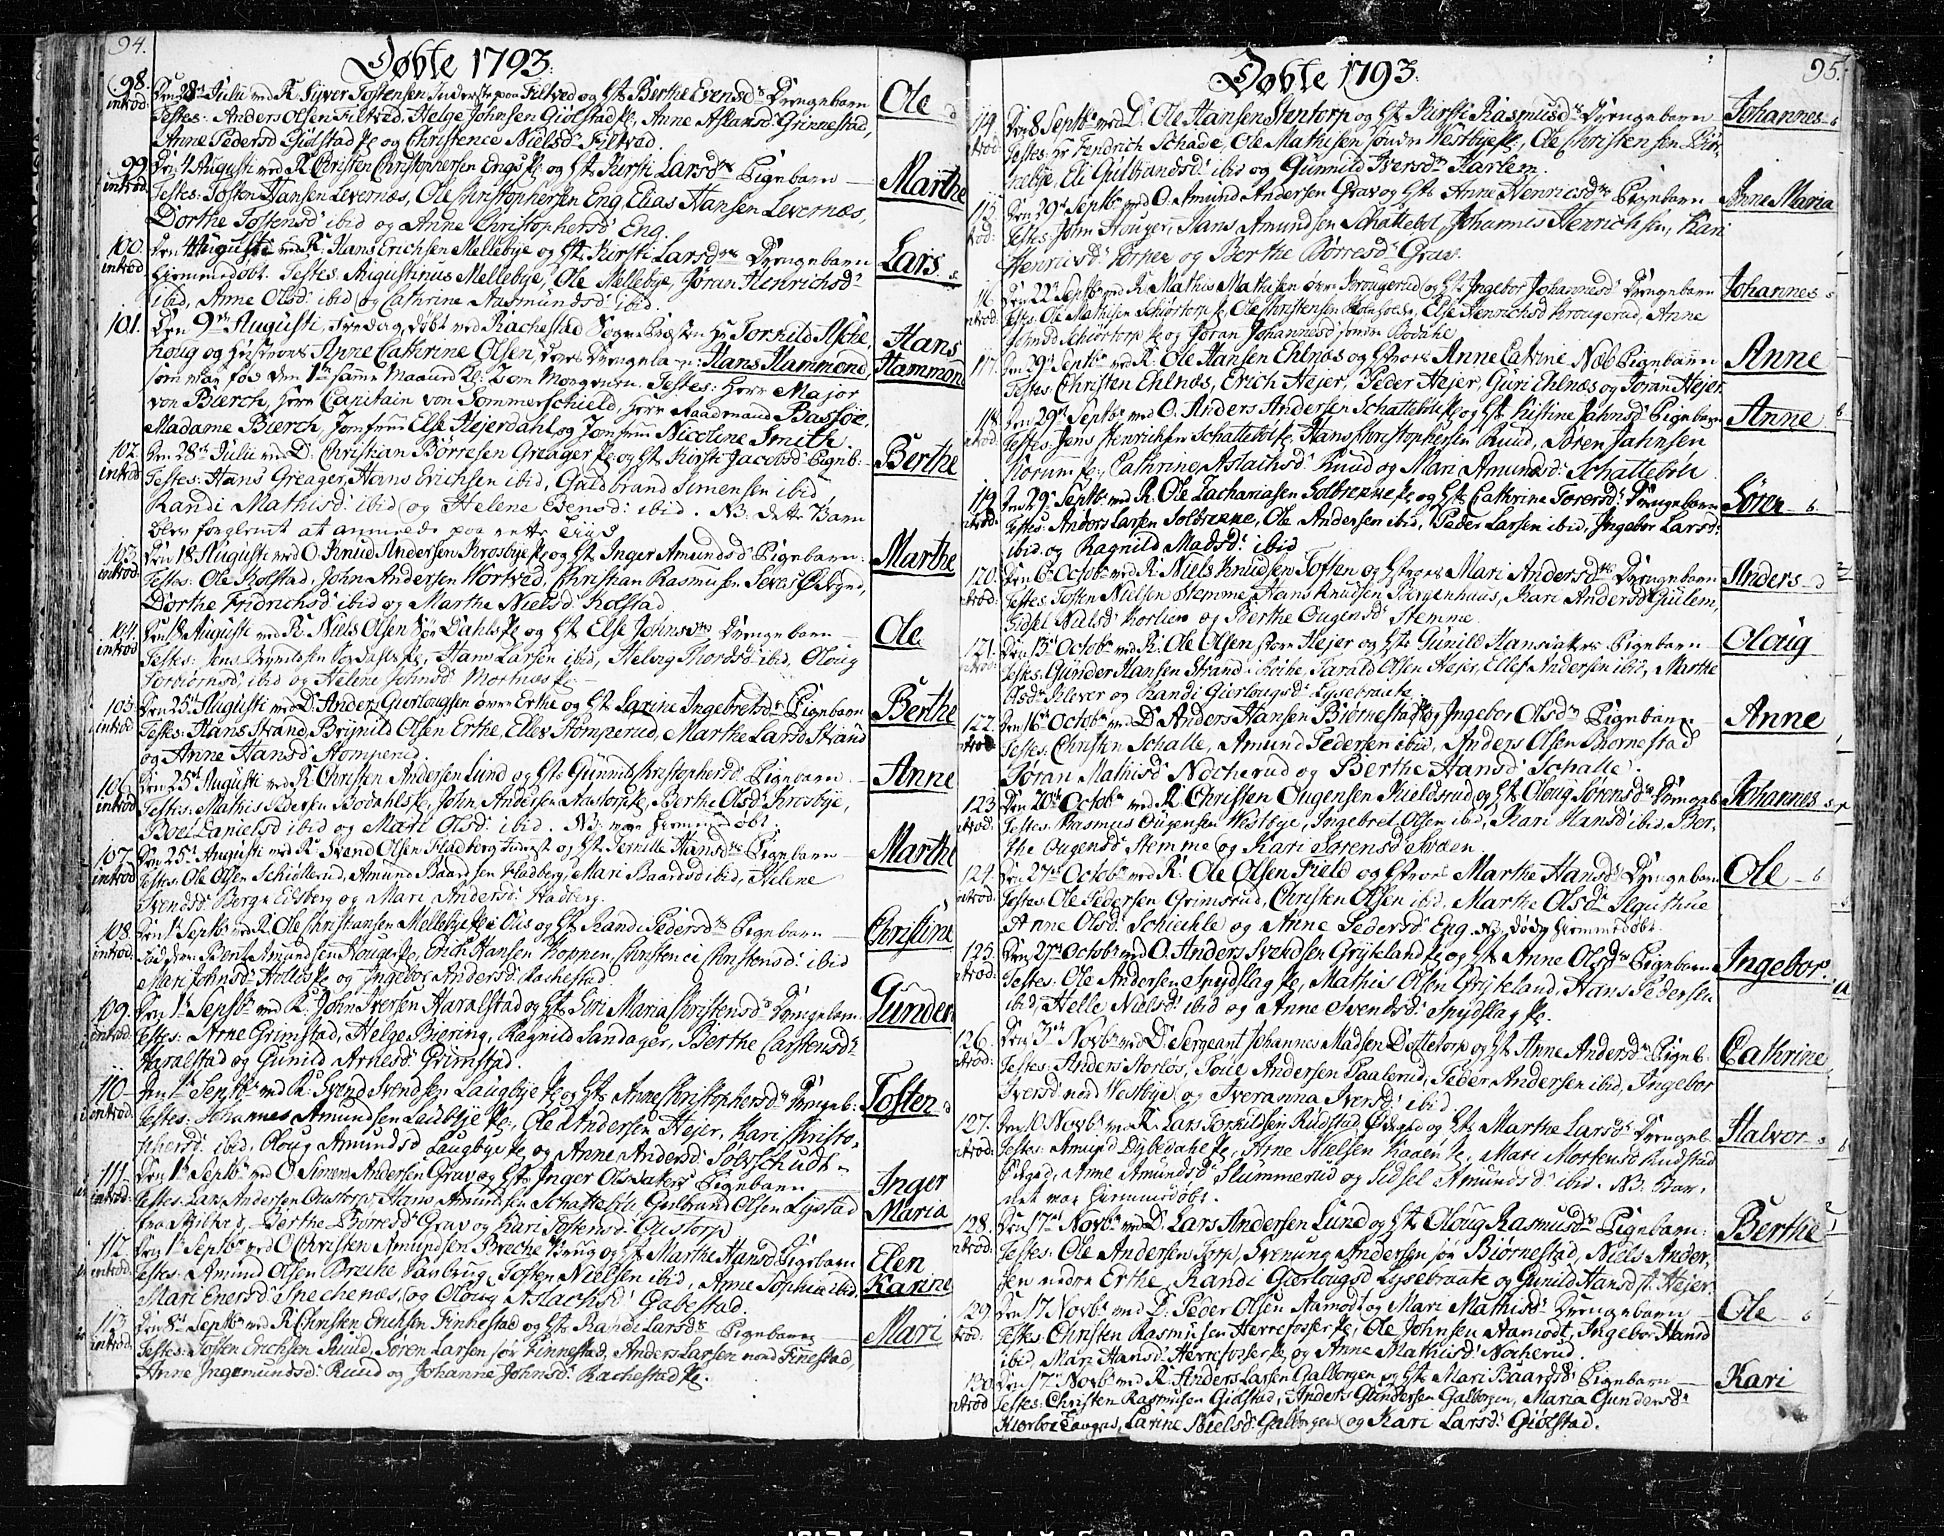 94.
Døbte 1793.
98. Den 28de Julii med R. Siver Tostensen Inderste paa Filtved og Hst. Berthe Evensd. Drengebarn Ole
introd. Testes: Anders Olsen Filtved, Helge Johnsen Giølstad, Anne Aslagsd. Grinnestad,
Anne Pedersd. Giølstad og Christence Nielsd. Filtved.
99. Den 4 Augusti med R. Christen Christophersen Engs og Hst. Kirsti Larsd. Pigebarn Marthe
introd. Testes: Tosten Hansen Levernæs, Ole Christophersen Eng, Elias Hansen Levernæs,
Dorthe Tostensd. ibid og Anne Christophersd. Eng.
100. Den Augusti med R. Hans Erichsen Mellebye og Hst. Kirsti Larsd. Drengebarn Lars
introd. hjemmedøbt. Testes: Augustinus Mellebye, Ole Mellebye, Jøran Henrichsd.
ibid, Anne Olsd. ibid og Cathrine Rasmundsd. ibid.
101. Den 9de Augusti, Fredag, døbt ved Rachestad Sogne Præsten Hr. Torkild Asche
houg og Hustroes Anne Cathrine Olsen deres Drengebarn: Hans Hammond, Hans Hammond
som var fød den 1te samme Maaned Kl: 2 om Morgenen. Testes: Herr Major
von Bierch, Herr Capitain von Sommerschield, Herr Raadmand Bassøe,
Madame Bierch, Jomfrue Else Hejerdahl og Jomfrue Nicoline Smith.
102. Den 28de Julii med D. Christian Børresen Greager og Hst. Kirsti Jacobsd. Pigeb. Berthe
introd Testes: Hans Greager, Hans Erichsen ibid, Guldbrand Simensen ibid,
Randi Mathisd. ibid og Helene Evensd. ibid. NB: dette Barn
blev forglemt at anmelde paa rette Tiid
103. Den 18 Augusti med O. Knud Andersen Krosbye og Hst. Inger Amundsd. Pigebarn. Marthe
introd. Testes: Ole Kolstad, John Andersen Wortved, Christian Rasmusen
Dorthe Fridrichsd. ibid og Marthe Nielsd. Kolstad
104. Den 18 Augusti med R. Niels Olsen Sør Dahls og Hst. Else Johnsd. Drengebarn Ole
introd Testes: Jens Brynildsen Sør Dahls, Hans Larsen ibid, Helvig Thordsd. ibid, Oloug
Torbiørnsd. ibid og Helene Johnsd. Mortnæs
105. Den 25de Augusti med D. Anders Gierlougsen øvre Erthe og Hst. Larine Ingebretsd. Pigebarn Berthe
introd Testes: Hans Strand, Brynild Olsen Erthe, Ellev Stomperud, Marthe Larsd. Strand
og Anne Hansd. Stomperud
106. Den 25de Augusti med R. Christen Andersen Lund og Hst. Gunnild Christophersd. Pigebarn Anne
introd Testes: Mathis Pedersen Bodahls, John Andersen Aastorp, Berthe Olsd. Krosbye,
Boel Danielsd. ibid og Mari Olsd. ibid. NB: var hjemmedøbt.
107. Den 25de Augusti med R. Svend Olsen Fladberg og Hst. Pernille Hansd. Pigebarn Marthe
introd Testes: Ole Olsen Schiøllerud, Amund Baardsen Fladberg, Mari Baardsd. ibid, Helene
Svendsd. Berg i Edsberg og Mari Andersd. Fladberg.
108. Den 1 Septbr. med R. Ole Christiansen Mellebye og Hst. Randi Pedersd. Pigebarn Christine
introd. Faddere: Bent Amundsen Houger, Erich Hansen Koppen, Christence Christensd. ibid
Mari Johnsd. Holtes og Ingebor Andersd. Rachestad.
109. Den 1te Septbr. med R. John Iversen Haralstad og Hst. Siri Maria Christensd. Drengebarn. Gunder
introd. Testes: Arne Grimstad, Helge Biering, Ragnild Sandager, Berthe Carstensd.
Haralstad og Gunild Arnesd. Grimstad.
110. Den 1te Septbr. med R. Svend Svendsen Laugbye og Hst. Anne Christophersd. Drengeb. Tosten
introd. Testes: Johannes Amundsen Laubye, Ole Andersen Hejer, Kari Christo-
phersd. ibid, Oloug Amundsd. Laugbye og Anne Andersd.
111. Den 1te Septbr. med O. Simen Andersen Grav og Hst. Inger Olsdatter Pigebarn Inger Maria
introd. Testes: Lars Andersen Oustorp, Hans Amundsen Schattebøl, Gulbrand Olsen Lystad
fra, Berthe Børresd. Grav og Kari Tostensd. Oustorp
112. Den 1te Septbr. med O. Christen Amundsen Breche Brug og Hst. Marthe Hansd. Pigebarn Elen Karine
introd. Testes: Amund Olsen Breche Saubrug, Tosten Nielsen ibid, Anne Sophia ibid,
Mari Enersd. Snechenæs og Oloug Aslachsd. Gabestad.
113. Den 8de Septbr. med R. Christen Erichsen Finnestad og Hst. Randi Larsd. Pigebarn Mari
introd. Testes: Tosten Erichsen Ruud, Søren Larsen sør Finnestad, Anders Larsen nord Finestad,
Anne Ingemundsd. Ruud og Johanne Johnsd. Rachestad.
95.
Døbte 1793.
114. Den 8 Septbr. med D. Ole Hansen Stentorp og Hst. Kirsti Rasmusd. Drengebarn Johannes
introd: Testes: Hr Hendrich Schade, Ole Mathisen søndre Westbye, Ole Christensen
Eli Gulbrandsd. ibid og Gunnild Iversd. Harlem.
115. Den 29de Septbr. med O. Amund Andersen Grav og Hst. Anne Henricsd. Pigebarn Anne Maria
Testes: John Houger, Hans Amundsen Schattebøl, Johannes Henrichsen, Kari
Henrichsd. Torper og Berthe Børresd. Grav.
116. Den 22de Septbr. med R. Mathis Mathisen øvre Krougerud og Hst. Ingebor Johannesd. Drengebarn Johannes
introd. Testes: Ole Mathisen Schiørtorp, Ole Christensen, Else Henrichsd. Krougerud, Anne
Schiørtorp og Jøran Johannesd. søndre Bodahl
117. Den 29de Septbr. med R. Ole Hansen Ehlnæs og Hustroes Anne Catrine Nøb Pigebarn Anne
Testes: Christen Ehlnæs, Erich Hejer, Peder Hejer, Guri Ehlnæs og Jøran Hejer
118. Den 29de Septbr. med O. Anders Andersen Schattebøl og Hst. Kistine Jahnsd. Pigebarn Anne
introd. Testes: Jens Henrichsen Schattebøl, Hans Christophersen Ruud, Søren Jahnsen
Cathrine Aslachsd. Ruud og Mari Amundsd. Schattebøl
119. Den 29de Septbr. med R. Ole Zachariasen Solbrekke og Hst. Cathrine Toresd. Drengebarn Søren
introd. Testes: Anders Larsen Solbrekke, Ole Andersen ibid, Peder Larsen ibid, Ingebor Larsd.
ibid og Ragnild Madsd. ibid
120. Den 6te Octobr. med R. Niels Knudsen Toften og Hustroes Mari Andersd. Drengebarn Anders
introd: Testes: Tosten Nielsen Stemme, Hans Knudsen Bergenhuus, Kari Andersd. Gulem,
Sidsel Nielsd. Korlien og Berthe Ougensd. Stemme.
121. Den 13de Octobr. med R. Ole Olsen store Hejer og Hst. Gunild Hansdatter Pigebarn Oloug
introd. Testes: Gunder Hansen Strand i Tribe, Tarald Olsen Hejer, Ellef Andersen ibid, Marthe
Olsd. Klever og Randi Gierlougsd. Lysebraate.
122. Den 16de Octobr. med D. Anders Hansen Biørnestad og Ingebor Olsd. Pigebarn Anne
introd. Testes: Christen Schalle, Amund Pedersen ibid, Anders Olsen Biørnestad
Jøran Mathisd. Nocherud og Berthe Hansd. Schalle.
123. Den 20de Octobr. med R. Christen Ougensen Kieldsrud og Hst. Oloug Sørensd. Drengeb. Johannes
introd. Testes: Rasmus Ougensen Westbye, Ingebret Olsen ibid, Kari Hansd. ibid, Ber-
the Ougensd. Stemme og Kari Sørensd. Sveen.
124. Den 27de Octobr. med R. Ole Olsen Field og Hustroes Marthe Hansd. Drengebarn Ole
introd. Testes: Ole Pedersen Grimsrud, Christen Olsen ibid, Marthe Olsd.
Anne Olsd. Schichle og Anne Pedersd. Eng. NB: Død hjemmedøbt.
125. Den 27de Octobr. med O. Anders Svendsen Grykeland og Hst. Anne Olsd. Pigebarn Ingebor.
introd. Testes: Ole Andersen Spydslag, Mathis Olsen Grykeland, Hans Pedersen
ibid, Helle Nielsd. ibid og Anne Svendsd. Spydslag.
126. Den 3de Novbr. med D. Sergeant Johannes Madsen Dottetorp og Hst. Anne Andersd. Pigeb. Cathrine
introd: Testes: Anders Norløs, Povel Andersen Paalerud, Peder Andersen ibid, Ingebor
Iversd. nord Westbye og Iveranna Iversd. ibid.
127. Den 10 Novbr. med R. Lars Torkildsen Rudstad Ødegrd og Hst. Marthe Larsd. Drengeb. Halvor
introd. Testes: Amund Dybedahl, Arne Nielsen Kaaen, Mari Mortensd. Rudstad
Ødegrd, Anne Amundsd. Slummerud og Sidsel Amundsd. ibid. NB. Bar-
net var hjemmedøbt.
128. Den 17de Novbr. med D. Lars Andersen Lund og Hst. Oloug Rasmusd. Pigebarn. Berthe
introd: Testes: Ole Andersen Torp, Svenung Andersen sør Biørnestad, Niels Ander-
sen nedre Erthe, Randi Gierlougsd. Lysebraate og Gunild Hansd. st. Hejer.
129. Den 17 Novbr. med D. Peder Olsen Aamodt og Mari Mathisd. Drengebarn Ole
introd: Testes: Christen Rasmusen Herrefosser, Ole Johnsen Aamodt, Ingebor Hansd.
ibid, Mari Hansd. Herrefosser og Anne Mathisd. Nocherud.
130. Den 17de Novbr. med R. Anders Larsen Galborgen og Hst. Mari Baardsd. Pigebarn Kari
introd Testes: Christen Rasmusen Giølstad, Anders Gundersen Galborgen, Maria Gundersd.
Kierboe Langnæs, Larine Nielsd. Galborgen og Kari Larsd. Giølstad.